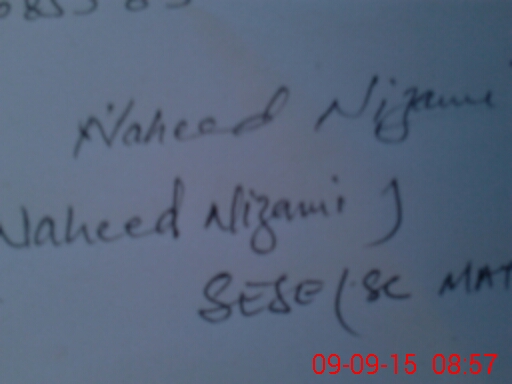 Naheed Nizami
Naheed Nizami )
SESE (SC MAT
09-09-15 08:57